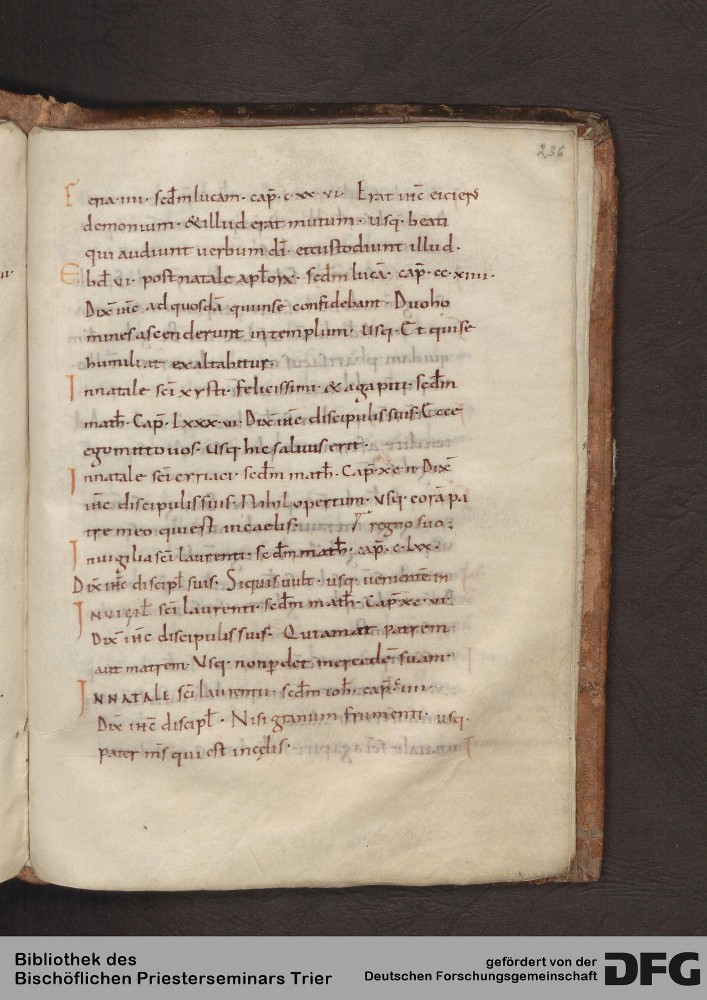 236
Feria · iiii · scdm lucam · cap̄ · c · xx · vi · Erat ihc eiciens
demonium · & illud erat mutum · usq · beati
qui audiunt uerbum dī · et custodiunt illud ·
Ebd̄ vi · post natale aplorx · scdm lucā · cap̄ · cc · xiiii ·
Dix̄ ihc ad quosdā qui in se confidebant · Duo ho
mines ascenderunt in templum · usq · Et qui se
humiliat exaltabitur ·
In natale sc̄i xysti · felicissimi · & agapiti · scdm
math̄ · Cap̄ · Lxxx · vi · Dix̄ ihc discipulis suis · Ecce
ego mitto uos · usq hic saluus erit ·
In natale sc̄i cyriaci · scdm math̄ · Cap̄ · xc · ii · Dix̄
ihc discipulis suis · Nihil opertum · usq · corā pa
tre meo qui est in caelis · regno suo ;
In uigilia sc̄i laurenti · scdm math̄ · cap̄ · c · Lxx ·
Dix̄ ihc discipl̄ suis · Si quis uult · usq · uenientē in
IN VIGIL̄ sc̄i laurenti · scdm math̄ · Cap̄ xc · vi ·
Dix̄ ihc discipulis suis · Qui amat patrem
aut matrem · Usq · non pdet mercedē suam ·
IN NATALE sc̄i laurentii · scdm ioh̄ · cap̄ · c iiii ·
Dix̄ ihc discipl̄ · Nisi granum frumenti · usq ·
pater m̄s qui est in cęlis ·
Bibliothek des
Bischöflichen Priesterseminars Trier
gefördert von der
Deutschen Forschungsgemeinschaft
DFG